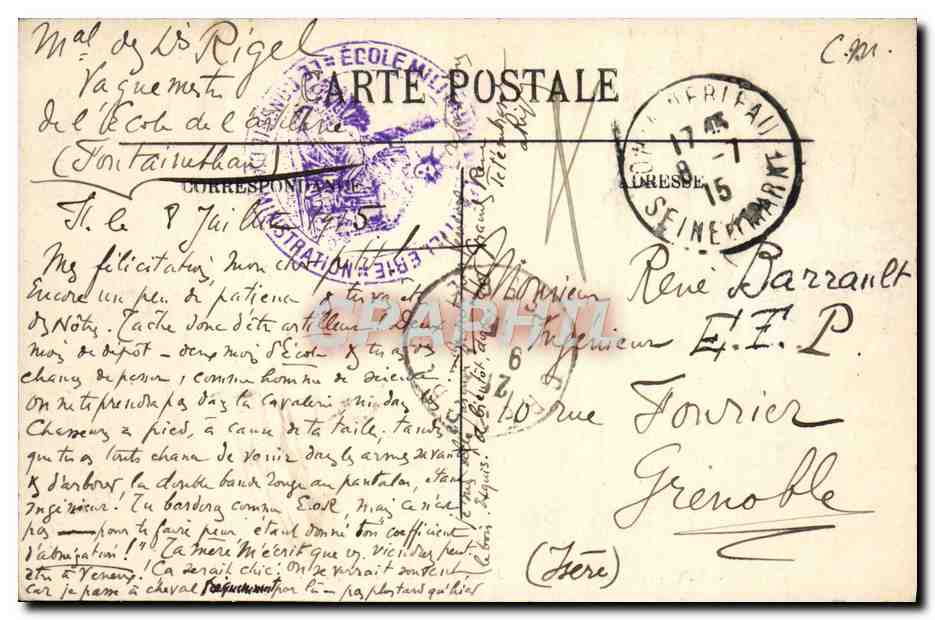 Mal des Lis Rigel
Vaguemestre
de l'École de l'artillerie
(Fontainebleau)
C.M.
CARTE POSTALE
CORRESPONDANCE
ADRESSE
ÉCOLE MILIT
ADMINISTRATION
ARTILLERIE
17 45
8 -7
15
SEINE-ET-MARNE
F. le 8 Juillet 1915
Mes félicitations mon cher petit
Encore un peu de patience & tu vas être
des Nôtres. Tâche donc d'être artilleur. Deux
mois de dépôt – deux mois d'École & tu as des
chances de passer, comme homme de science
on ne te prendra pas dans la cavalerie ni dans les
Chasseurs à pied, à cause de ta taille. tandis
que tu as toute chance de venir dans les armes savantes
& d'arborer la double bande rouge au pantalon, étant
ingénieur. Tu barderas comme E.O.R. mais ce n'est
pas — pour te faire peur étant donné ton "coefficient
d'abnégation!" Ta mère m'écrit que vs. viendrez peut-
être à Veneux! Ça serait chic: on se verrait souvent
car je passe à cheval par là – pas plus tard qu'hier
le bois exquis. à bientôt
Monsieur René Barrault
Ingénieur E.E.P.
10 rue Fourier
Grenoble
(Isère)
CPAPHIL